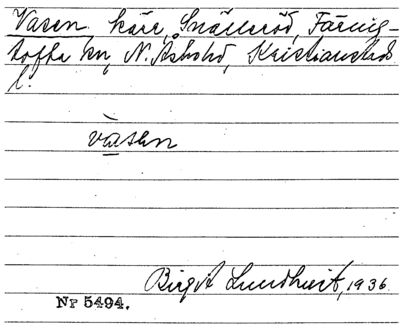 Vasen, kärr, Snälleröd, Färing-
tofta sn, N. Åsbohd, Kristianstads
l.
vàsen
Birgit Lundkvist, 1936
Nr 5494.